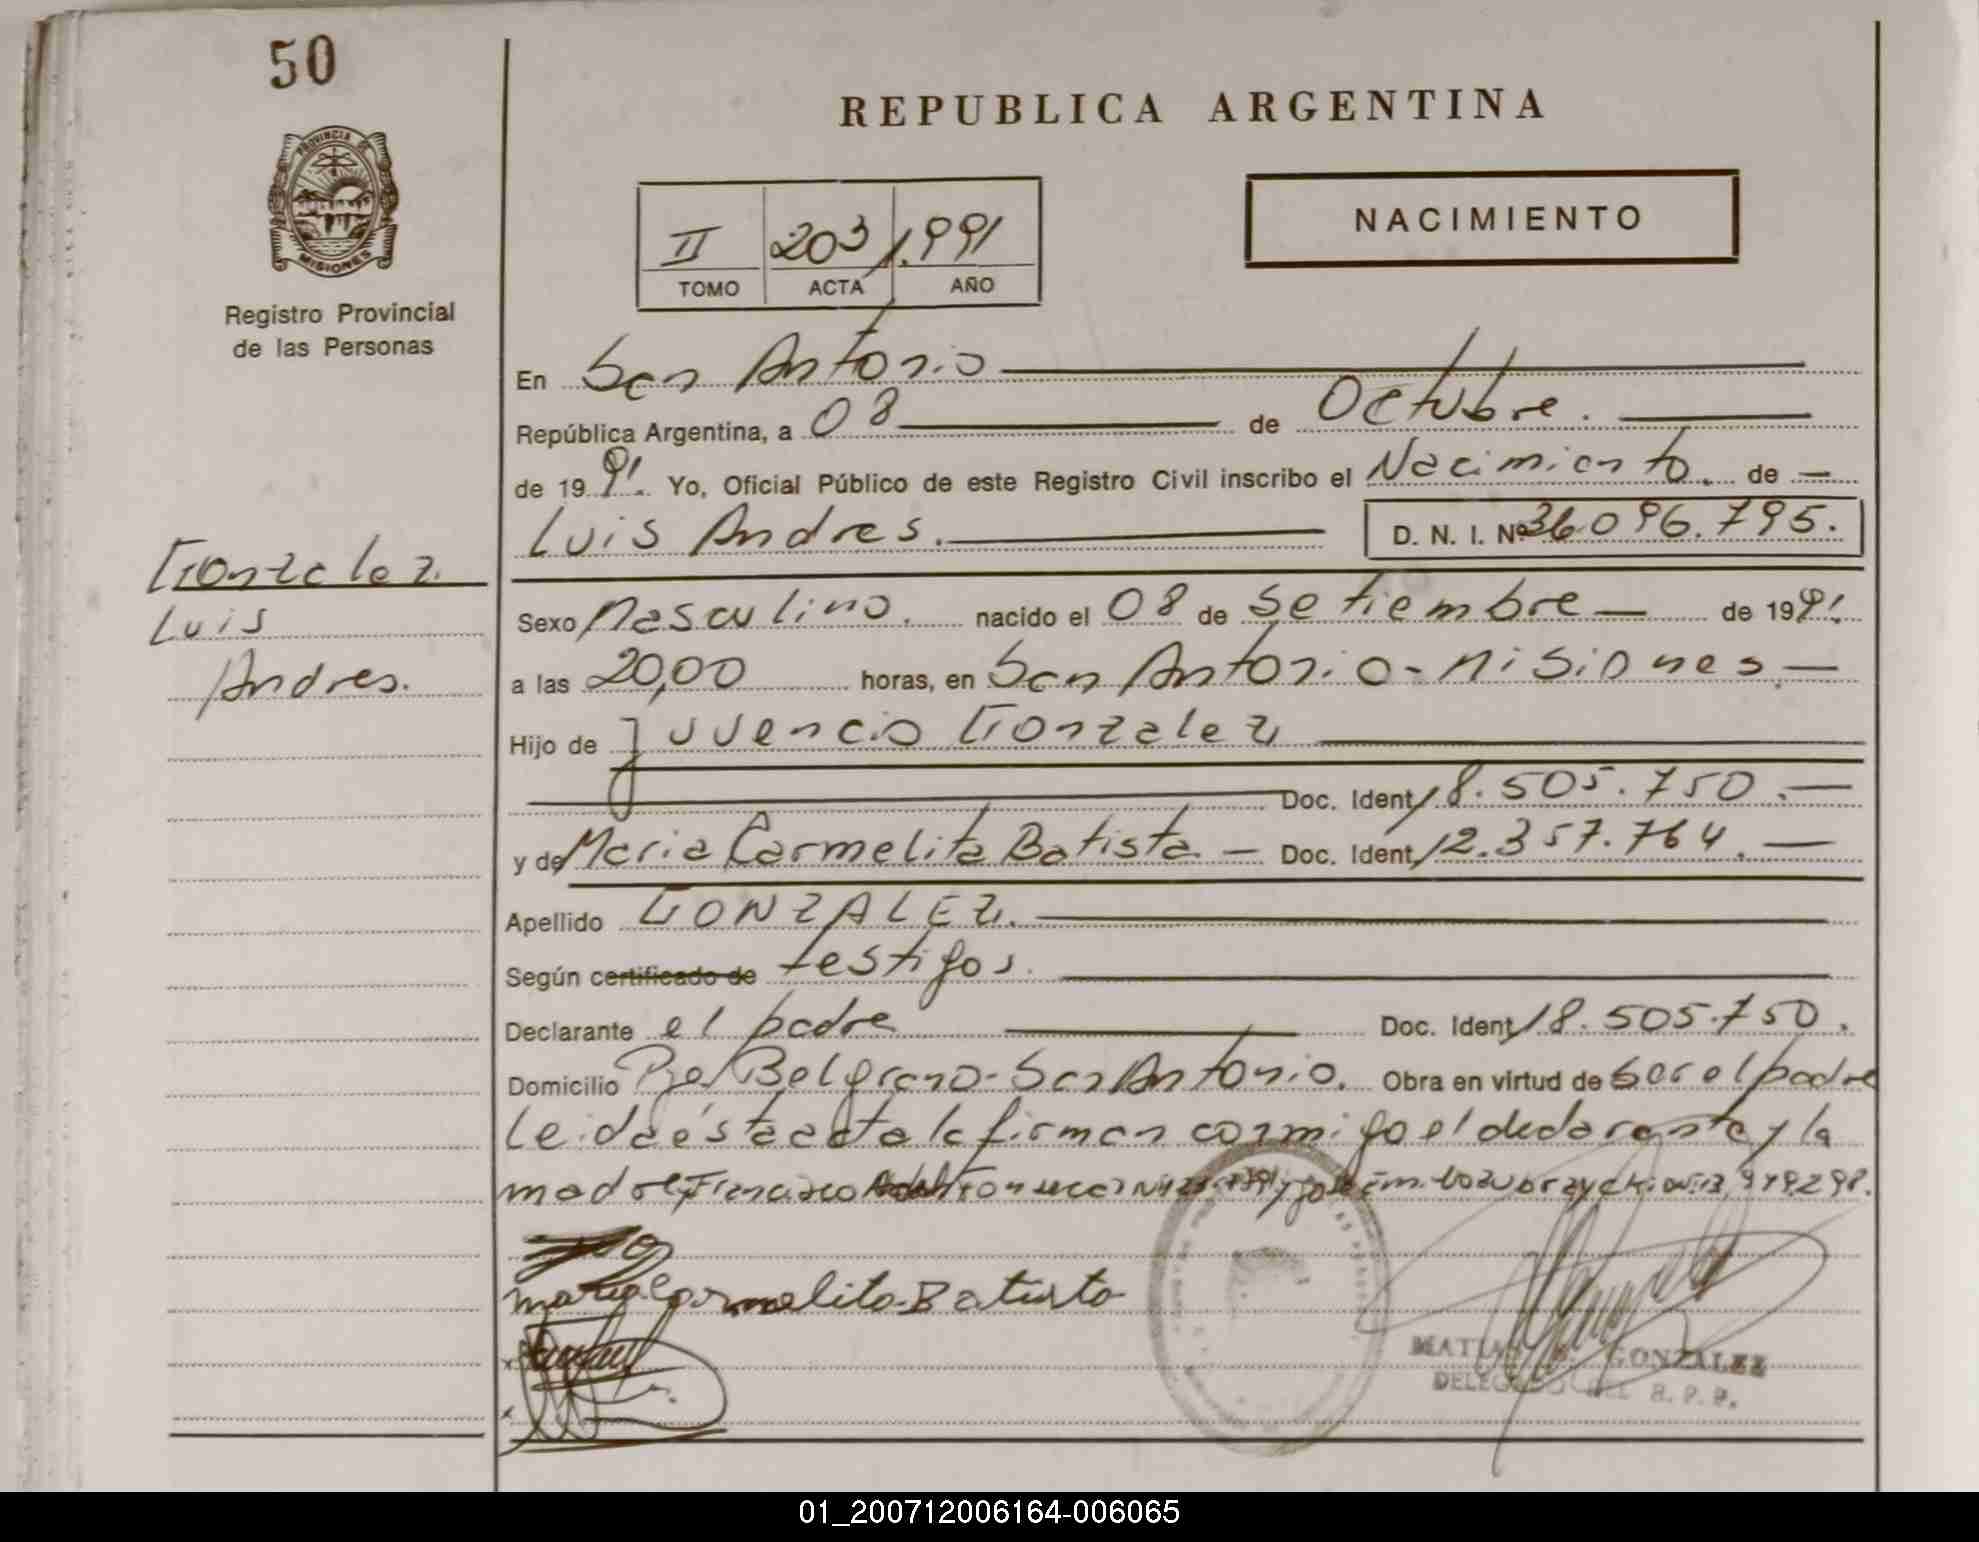 50
REPUBLICA ARGENTINA
PROVINCIA DE
MISIONES
Registro Provincial
de las Personas
II 203 1.991
TOMO ACTA AÑO
NACIMIENTO
En San Antonio
República Argentina, a 08 de Octubre.
de 1991. Yo, Oficial Público de este Registro Civil inscribo el Nacimiento. de
Luis Andres. D. N. I. Nº 36.096.795.
Gonzalez
Luis
Andres.
Sexo Masculino. nacido el 08 de Setiembre de 1991.
a las 20,00 horas, en San Antonio - Misiones.
Hijo de Juvencio Gonzalez
Doc. Ident. 18.505.750.
y de Maria Carmelita Batista - Doc. Ident. 12.357.764.
Apellido GONZALEZ.
Según certificado de testigos.
Declarante el padre Doc. Ident. 18.505.750.
Domicilio Pje/Belgrano - San Antonio. Obra en virtud de Ser el padre
Leida ésta acta la firman conmigo el declarante y la
madre, Francisco
Maria Carmelita Batista
GONZALEZ
DELEGADO DEL R. P. P.
01_200712006164-006065